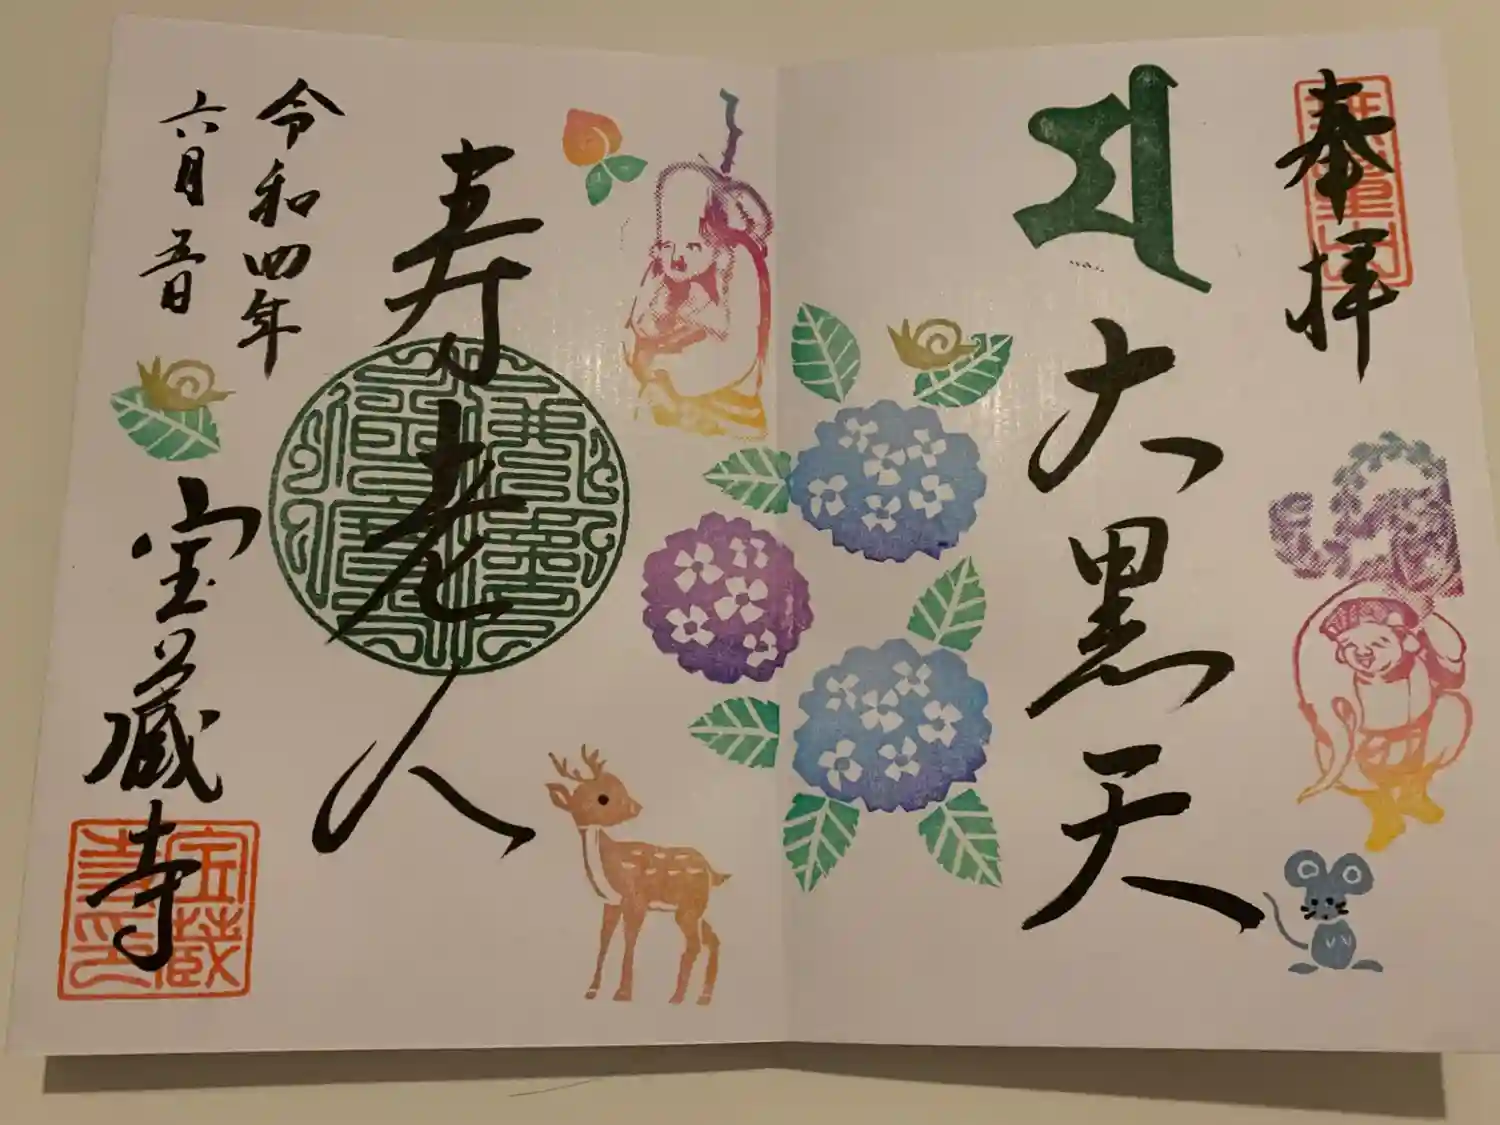 奉拝
大黒天
寿老人
令和四年
六月五日
宝蔵寺
宝蔵
寺印